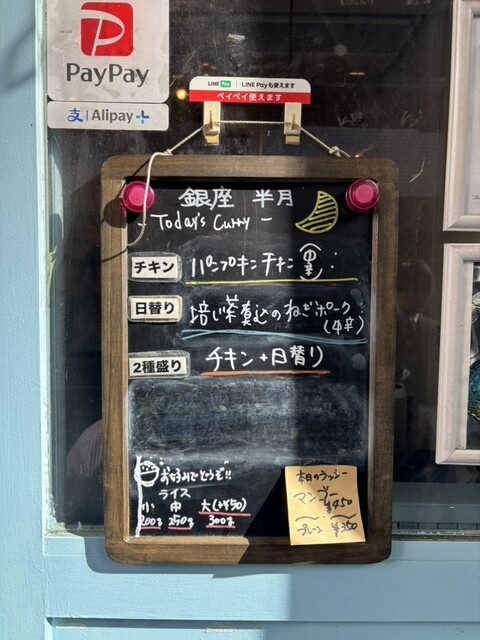 PayPay
支 Alipay+
LINE Pay LINE Payも使えます
ペイペイ使えます
銀座 半月
- Today's Curry -
チキン パンプキンチキン
日替り 焙じ茶煮込のねぎポーク
(4辛)
2種盛り チキン+日替り
お好みでどうぞ!!
ライス
小 中 大(+¥50)
200g 250g 300g
本日のラッシー
マンゴー
¥450
プレーン ¥350